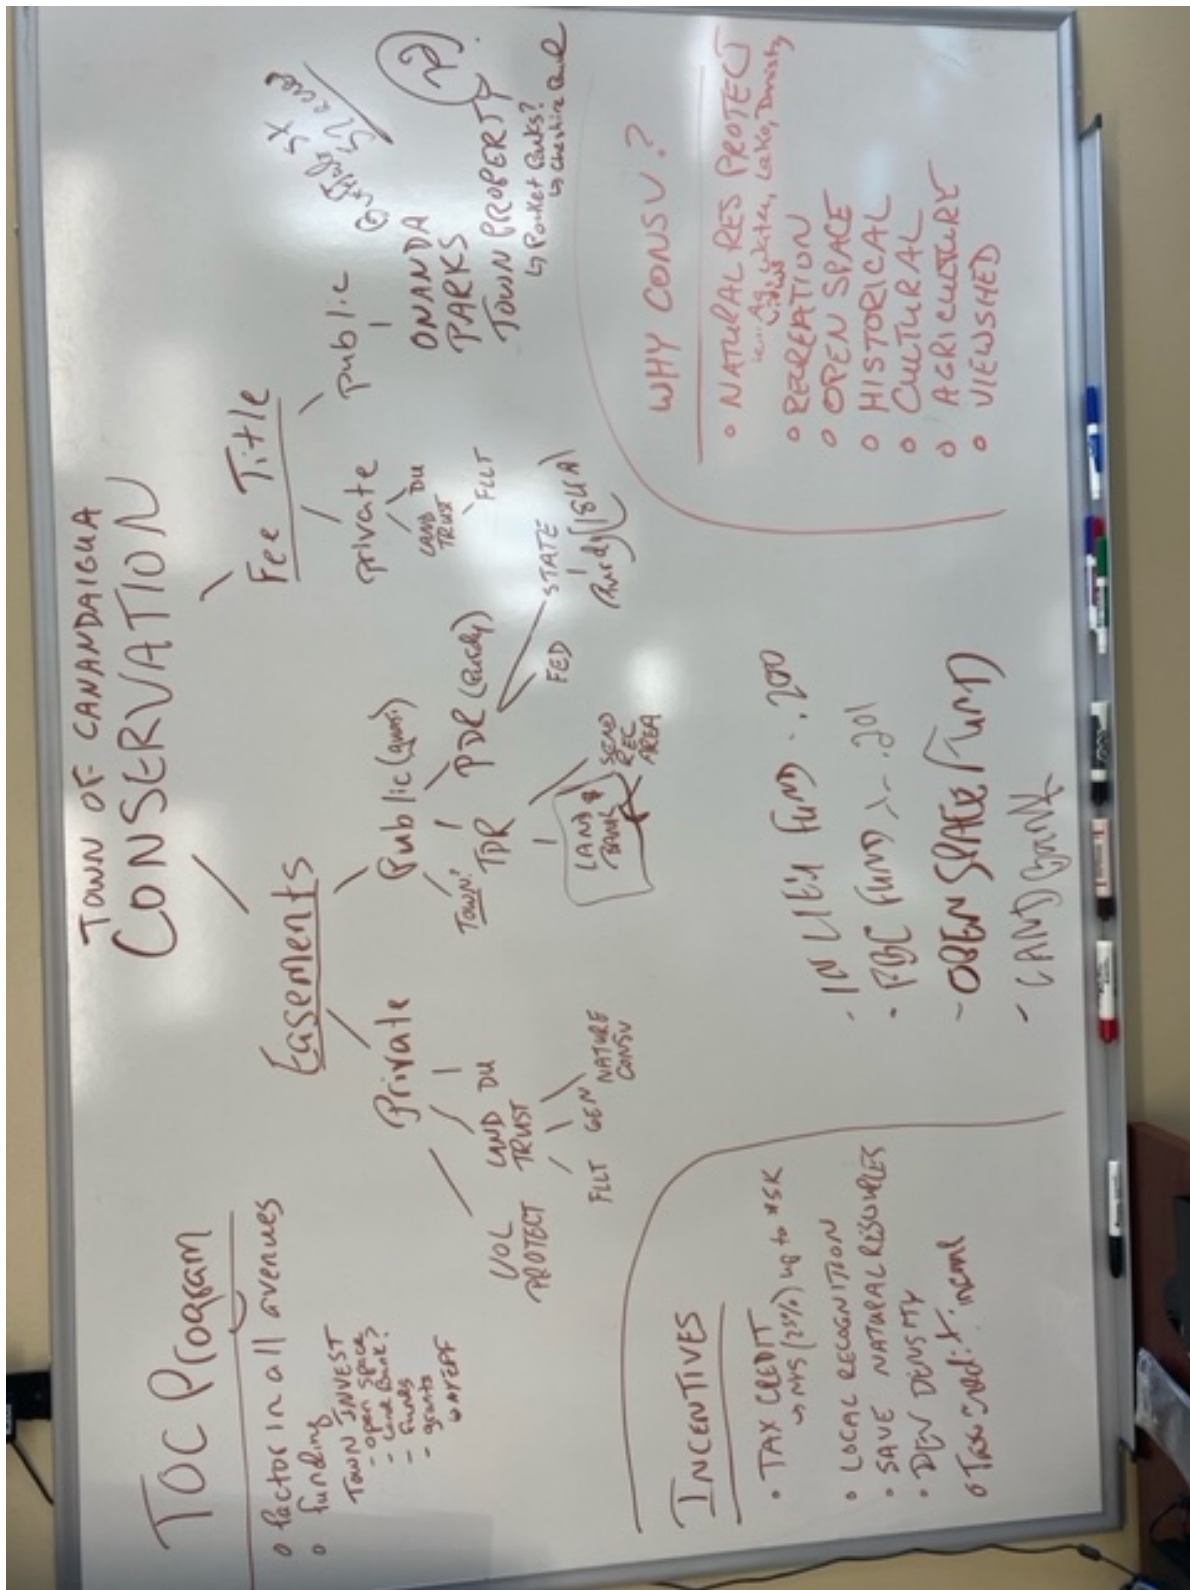 TOWN OF CANANDAIGUA
CONSERVATION
TOC Program
o factor in all avenues
o funding
TOWN INVEST
- open space
- Land Bank?
- Funds
- grants
Easements
Private
VOL
PROTECT
LAND
TRUST
DU
FLLT
GEN
NATURE
CONSV
Public (quasi)
TOWN?
TDR
PDR (Purdy)
LAND
BANK
SEND
REC
AREA
FED
STATE
Purdy
Fee Title
private
LAND
TRUST
DU
FLLT
public
ONANDA
PARKS
TOWN PROPERTY
↳ Pocket Parks?
↳ Cheshire
INCENTIVES
o TAX CREDIT
↳ NYS (25%) up to $5K
o LOCAL RECOGNITION
o SAVE NATURAL RESOURCES
o DEV DENSITY
o Tax credit: income
- IN LIEU FUND
- FUND
- OPEN SPACE FUND
- LAND BANK
WHY CONSV?
o NATURAL RES PROTECT
Water, Lake, Density
o RECREATION
o OPEN SPACE
o HISTORICAL
o CULTURAL
o AGRICULTURY
o VIEWSHED